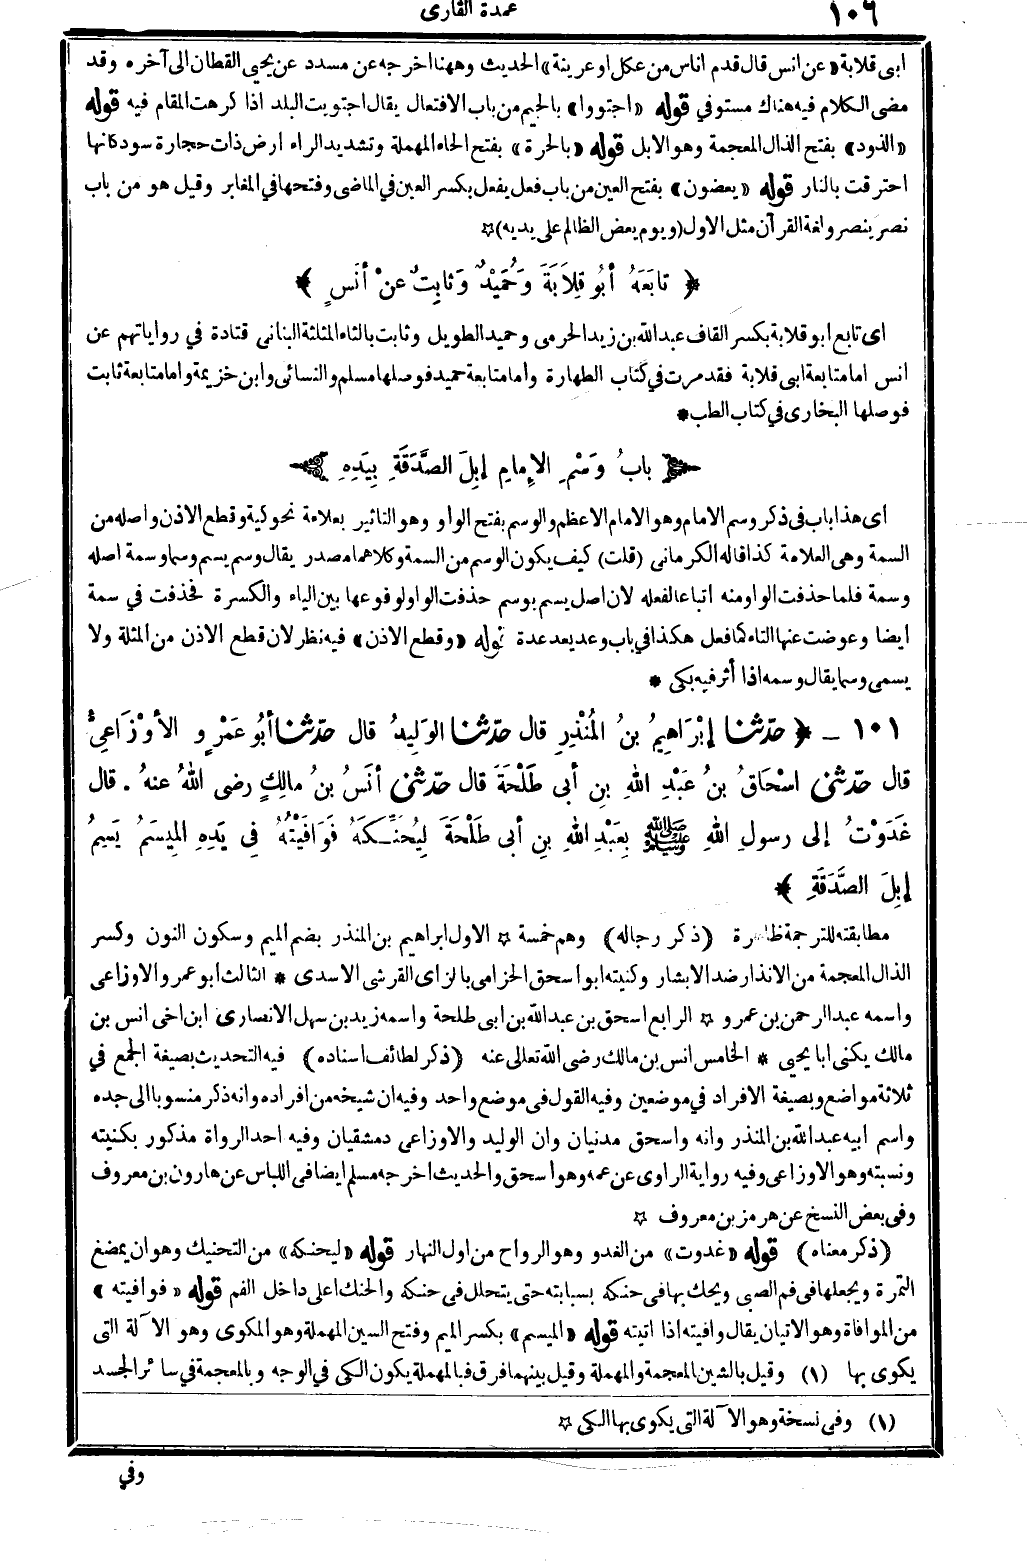 ١٠٦
عمدة القارى
ابى قلابة «عن انس قال قدم اناس من عكل او عرينة» الحديث وههنا اخرجه عن مسدد عن يحيى القطان الى آخره وقد
مضى الكلام فيه هناك مستوفي قوله «اجتووا» بالجيم من باب الافتعال يقال اجتويت البلد اذا كرهت المقام فيه قوله
«الذود» بفتح الذال المعجمة وهو الابل قوله «بالحرة» بفتح الحاء المهملة وتشديد الراء ارض ذات حجارة سود كانها
احترقت بالنار قوله «يعضون» بفتح العين من باب فعل يفعل بكسر العين في الماضى وفتحها في الغابر وقيل هو من باب
نصر ينصر ولغة القرآن مثل الاول (ويوم يعض الظالم على يديه) ☆
﴿ تابَعَهُ أبُو قِلاَبَةَ وَحُمَيْدٌ وَثابِتٌ عنْ أنَسٍ ﴾
اى تابع ابو قلابة بكسر القاف عبد الله بن زيد الجرمى وحميد الطويل وثابت بالثاء المثلثة البنانى قتادة في رواياتهم عن
انس امامتابعة ابى قلابة فقد مرت في كتاب الطهارة وأما متابعة حميد فوصلها مسلم والنسائى وابن خزيمة واما متابعة ثابت
فوصلها البخارى في كتاب الطب *
﴿ بابُ وَسْمِ الإِمامِ إبِلَ الصَّدَقَةِ بِيَدِهِ ﴾
اى هذا باب فى ذكر وسم الامام وهو الامام الاعظم والوسم بفتح الواو وهو التاثير بعلامة نحو كية وقطع الاذن واصله من
السمة وهى العلامة كذا قاله الكرمانى (قلت) كيف يكون الوسم من السمة وكلاهما مصدر يقال وسم يسم وسما وسمة اصله
وسمة فلما حذفت الواو منه اتباعا لفعله لان اصل يسم يوسم حذفت الواو لوقوعها بين الياء والكسرة فحذفت في سمة
ايضا وعوضت عنها التاء كما فعل هكذا في باب وعد يعد عدة قوله «وقطع الاذن» فيه نظر لان قطع الاذن من المثلة ولا
يسمى وسما يقال وسمه اذا أثر فيه بكى *
١٠١ - ﴿ حدّثنا إبْرَاهِيمُ بنُ المُنْذِرِ قال حدّثنا الوَلِيدُ قال حدّثنا أبُو عَمْرٍو الأوْزَاعِيُّ
قال حدّثنى اسْحَاقُ بنُ عَبْدِ اللهِ بنِ أبى طَلْحَةَ قال حدّثنى أنَسُ بنُ مالِكٍ رضى اللهُ عنهُ . قال
غَدَوْتُ إلى رسولِ اللهِ ﷺ بِعَبْدِ اللهِ بنِ أبى طَلْحَةَ لِيُحَنِّكَهُ فَوَافَيْتُهُ فِي يَدِهِ المِيسَمُ يَسِمُ
إبِلَ الصَّدَقَةِ ﴾
مطابقته للترجمة ظاهرة (ذكر رجاله) وهم خمسة ☆ الاول ابراهيم بن المنذر بضم الميم وسكون النون وكسر
الذال المعجمة من الانذار ضد الابشار وكنيته ابو اسحق الحزامى بالزاى القرشى الاسدى * الثالث ابو عمرو الاوزاعى
واسمه عبدالرحمن بن عمرو ☆ الرابع اسحق بن عبدالله بن ابى طلحة واسمه زيد بن سهل الانصارى ابن اخى انس بن
مالك يكنى ابا يحيى * الخامس انس بن مالك رضى الله تعالى عنه (ذكر لطائف اسناده) فيه التحديث بصيغة الجمع في
ثلاثة مواضع وبصيغة الافراد في موضعين وفيه القول فى موضع واحد وفيه ان شيخه من افراده وانه ذكر منسوبا الى جده
واسم ابيه عبدالله بن المنذر وانه واسحق مدنيان وان الوليد والاوزاعى دمشقيان وفيه احد الرواة مذكور بكنيته
ونسبته وهو الاوزاعى وفيه رواية الراوى عن عمه وهو اسحق والحديث اخرجه مسلم ايضا فى اللباس عن هارون بن معروف
وفى بعض النسخ عن هرمز بن معروف ☆
(ذكر معناه) قوله «غدوت» من الغدو وهو الرواح من اول النهار قوله «ليحنكه» من التحنيك وهو ان يمضغ
التمرة ويجعلها فى فم الصبى ويحك بها فى حنكه بسبابته حتى يتحلل فى حنكه والحنك اعلى داخل الفم قوله «فوافيته»
من الموافاة وهو الاتيان يقال وافيته اذا اتيته قوله «الميسم» بكسر الميم وفتح السين المهملة وهو المكوى وهو الآلة التى
يكوى بها (١) وقيل بالشين المعجمة والمهملة وقيل بينهما فرق فبالمهملة يكون الكى في الوجه وبالمعجمة في سائر الجسد
(١) وفى نسخة وهو الآلة التى يكوى بها الكى ☆
وفي